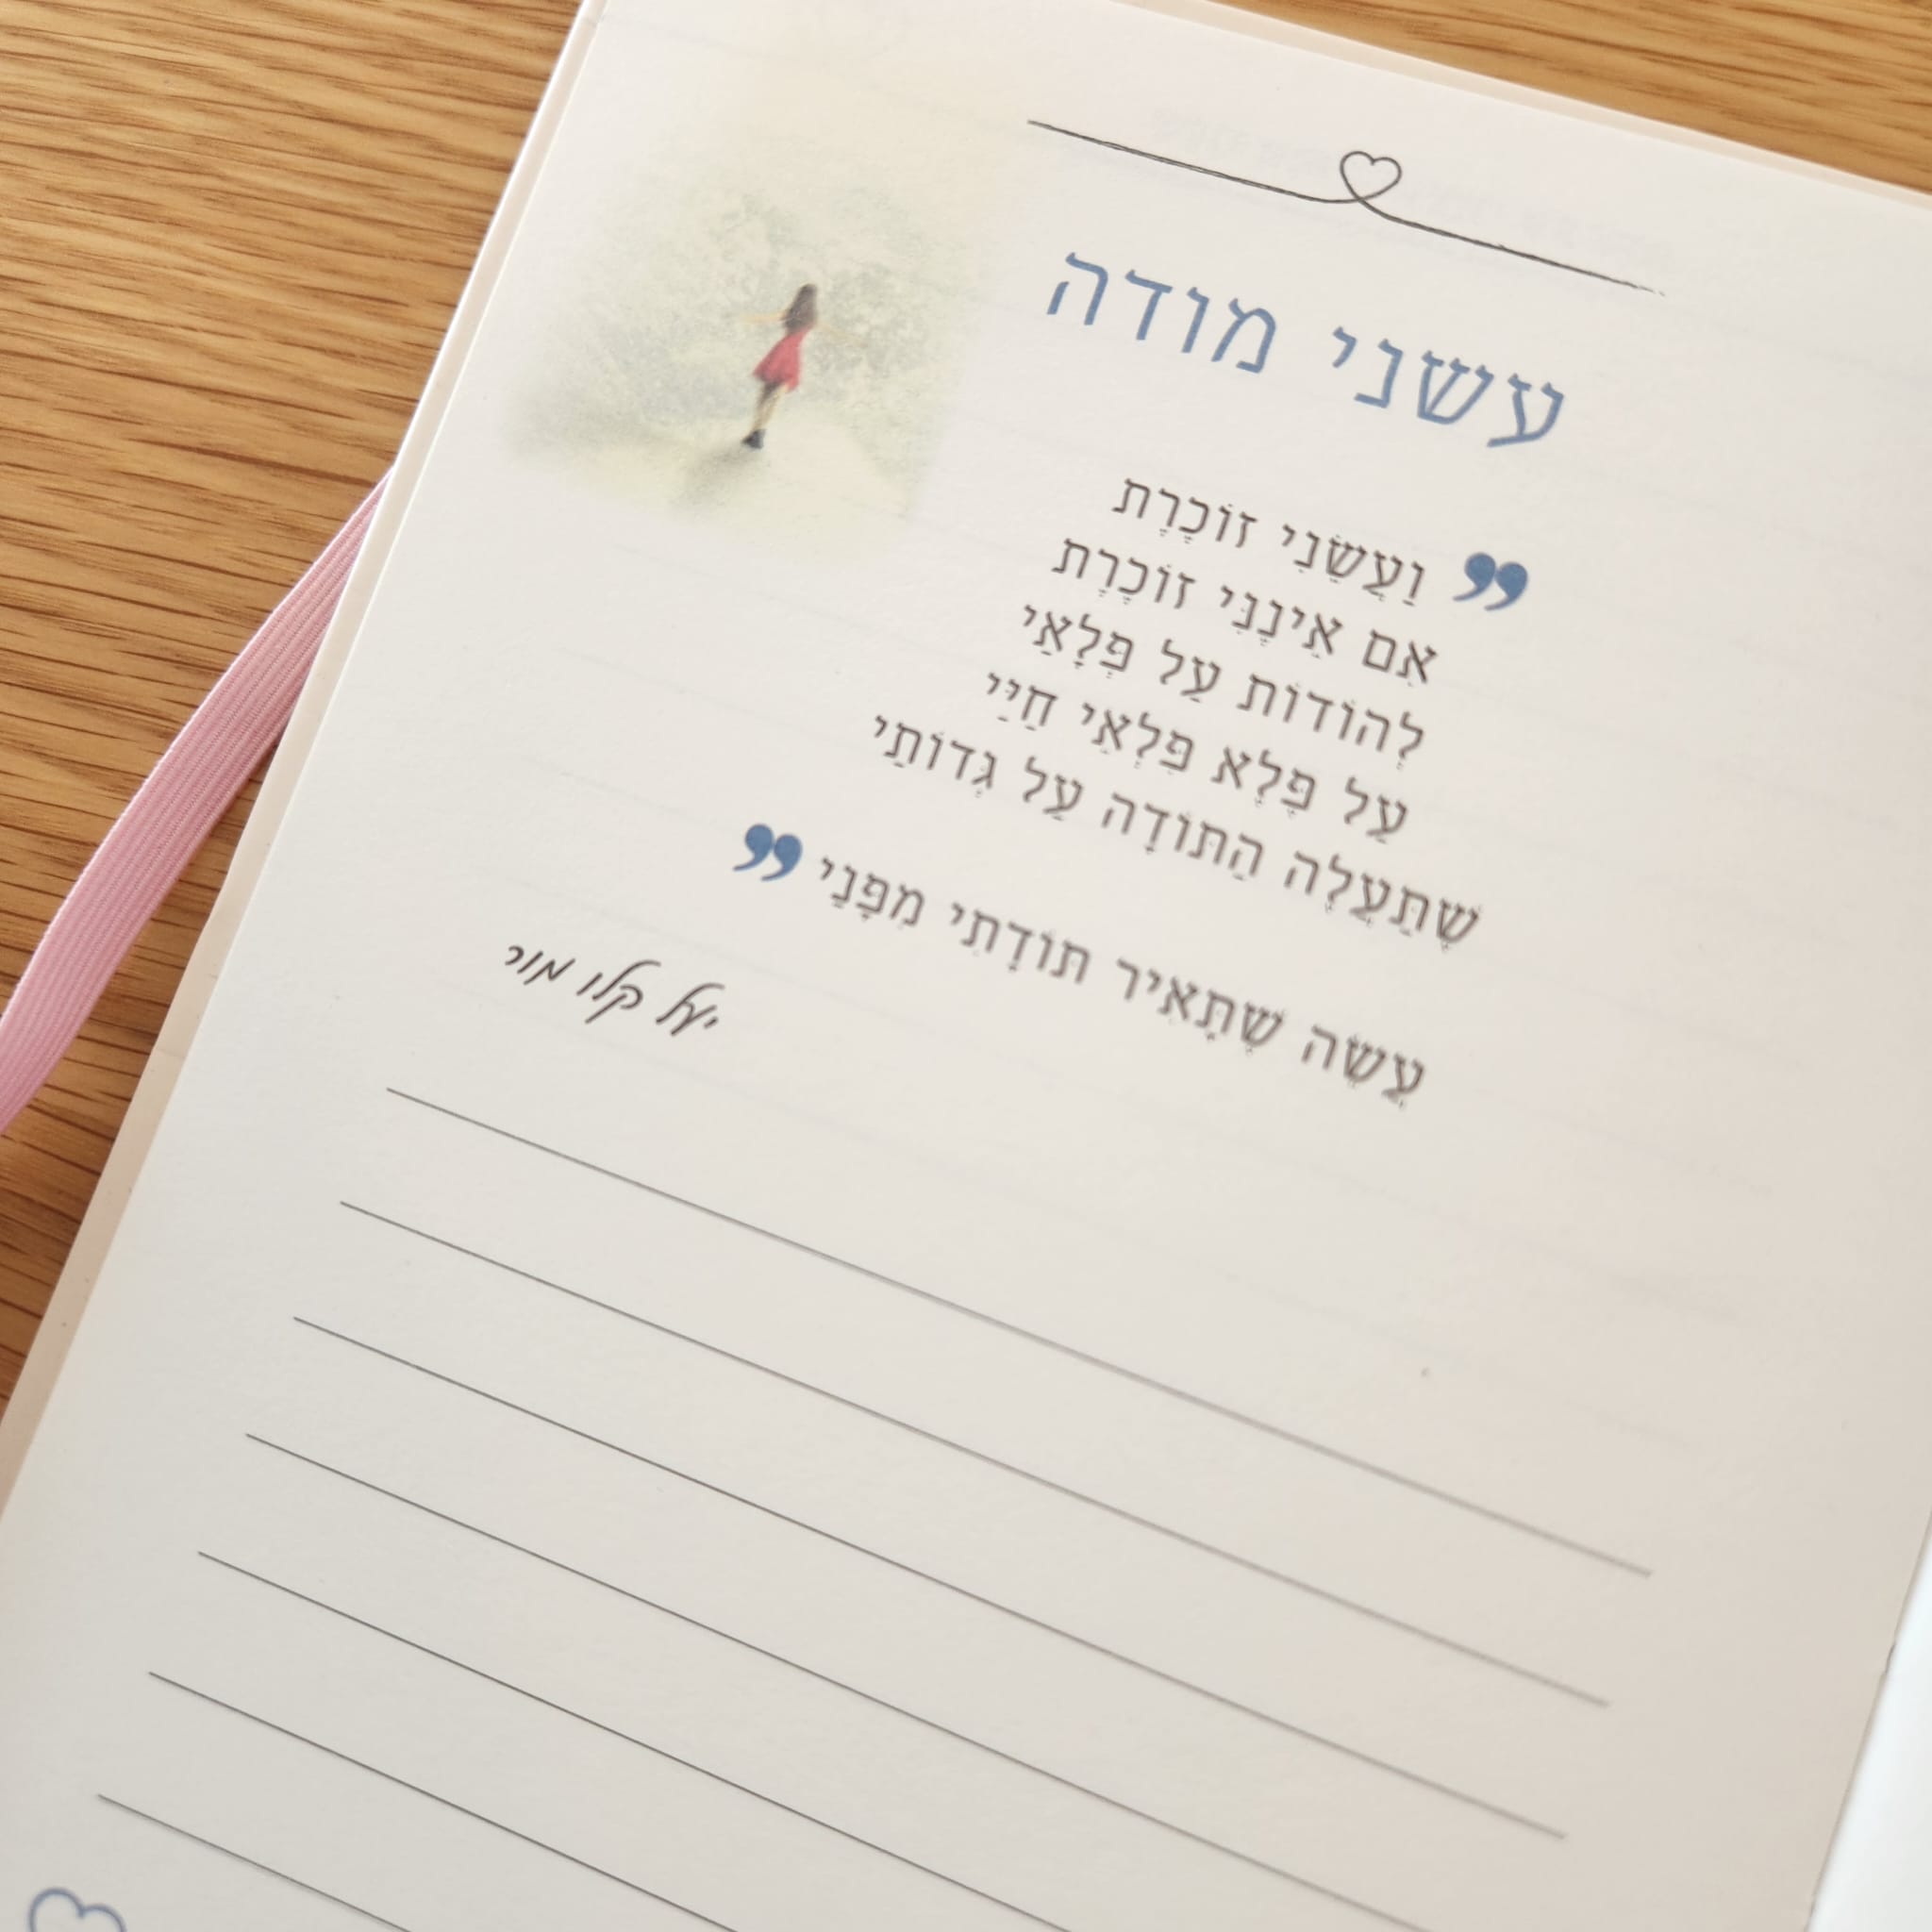 עשני מודה
”וַעֲשֵׂנִי זוֹכֶרֶת
אִם אֵינֶנִּי זוֹכֶרֶת
לְהוֹדוֹת עַל פְּלָאַי
עַל פֶּלֶא פִּלְאֵי חַיַּי
שֶׁתַּעֲלֶה הַתּוֹדָה עַל גְּדוֹתַי
עֲשֵׂה שֶׁתָּאִיר תּוֹדָתִי מִפָּנַי”
יעל קלו מור